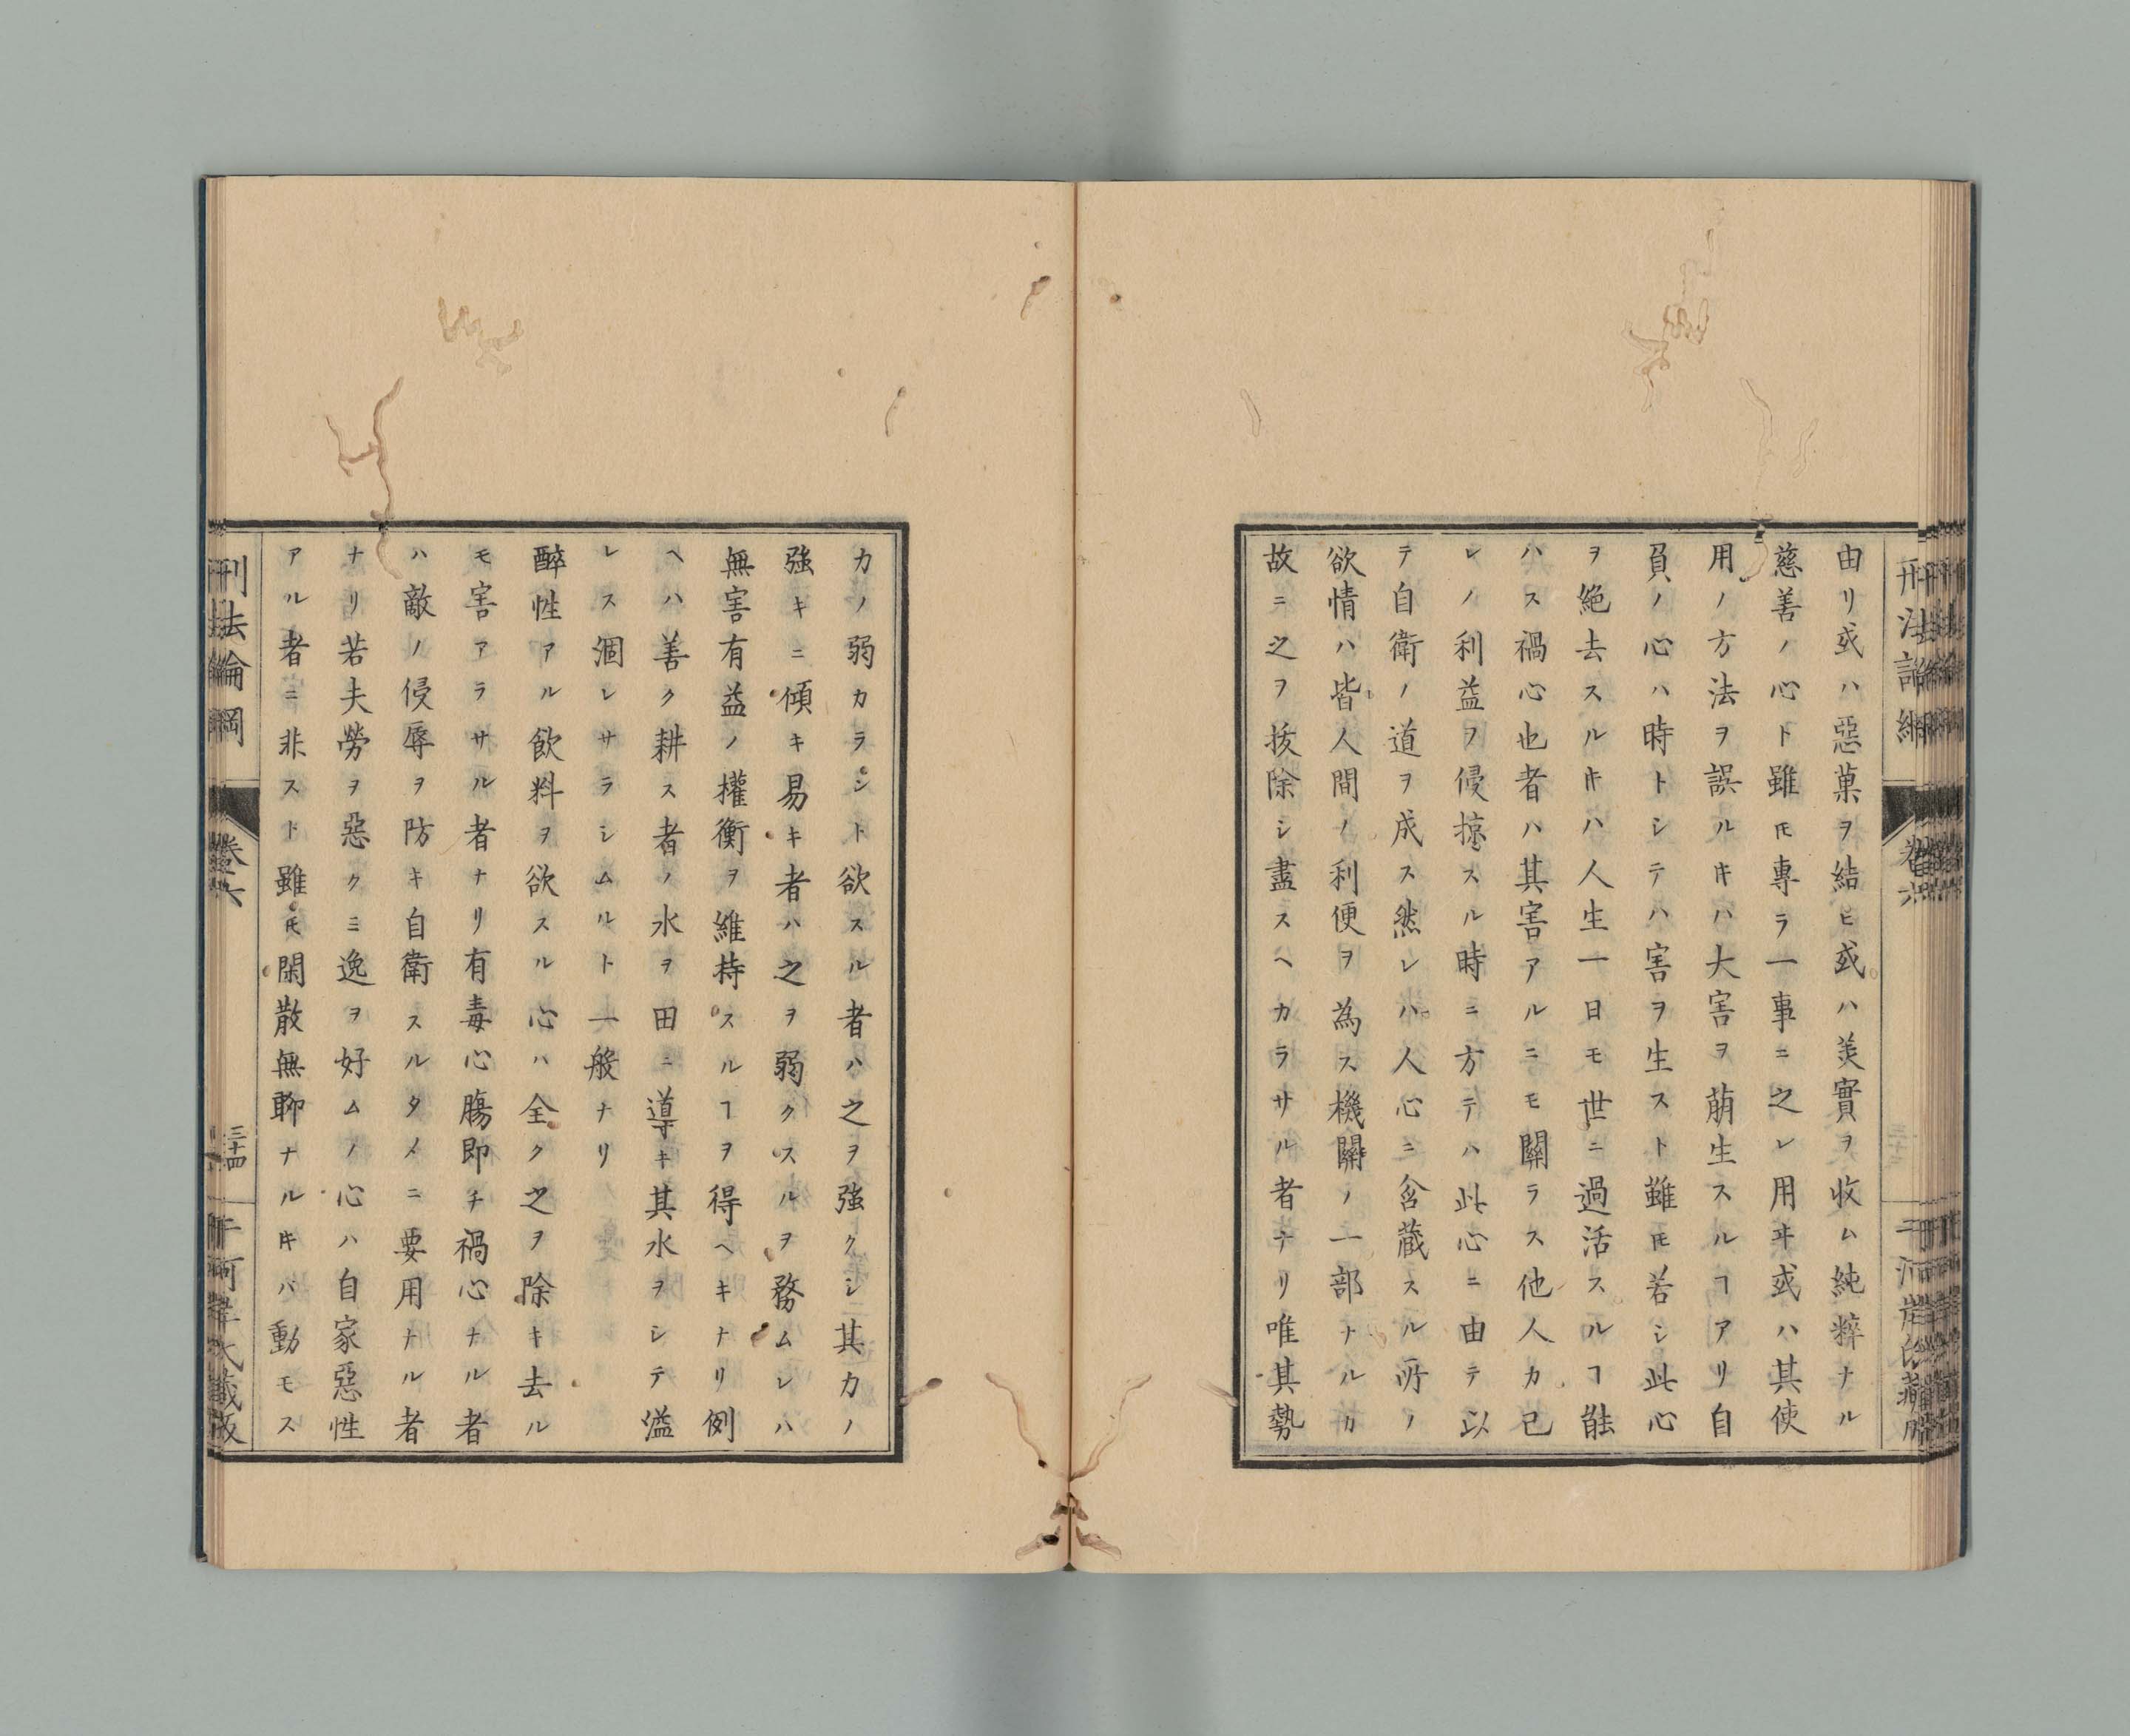 由リ或ハ惡菓ヲ結ヒ或ハ羙實ヲ收ム純粹ナル
慈善ノ心ト雖𪜈專ラ一事ニ之レ用ヰ或ハ其使
用ノ方法ヲ誤ルキハ大害ヲ萠生スルヿアリ自
負ノ心ハ時トシテハ害ヲ生スト雖𪜈若シ此心
ヲ絶去スルキハ人生一日モ世ニ過活スルヿ能
ハス禍心也者ハ其害アルニモ關ラス他人カ己
レノ利益ヲ侵掠スル時ニ方テハ此心ニ由テ以
テ自衛ノ道ヲ成ス然レハ人心ニ含蔵スル所ノ
欲情ハ皆人間ノ利便ヲ為ス機關ノ一部ナルカ
故ニ之ヲ拔除シ盡スヘカラサル者ナリ唯其勢
力ノ弱カラシト欲スル者ハ之ヲ強クシ其力ノ
強キニ傾キ易キ者ハ之ヲ弱クスルヲ務ムレハ
無害有益ノ權衡ヲ維持スルヿヲ得ヘキナリ例
ヘハ善ク耕ス者ノ水ヲ田ニ導キ其水ヲシテ溢
レス涸レサラシムルト一般ナリ
醉性アル飲料ヲ欲スル心ハ全ク之ヲ除キ去ル
モ害アラサル者ナリ有毒心膓即チ禍心ナル者
ハ敵ノ侵辱ヲ防キ自衛スルタメニ要用ナル者
ナリ若夫勞ヲ惡クミ逸ヲ好ムノ心ハ自家惡性
アル者ニ非スト雖𪜈閑散無聊ナルキバ動モス
刑法論綱
卷六
三十四